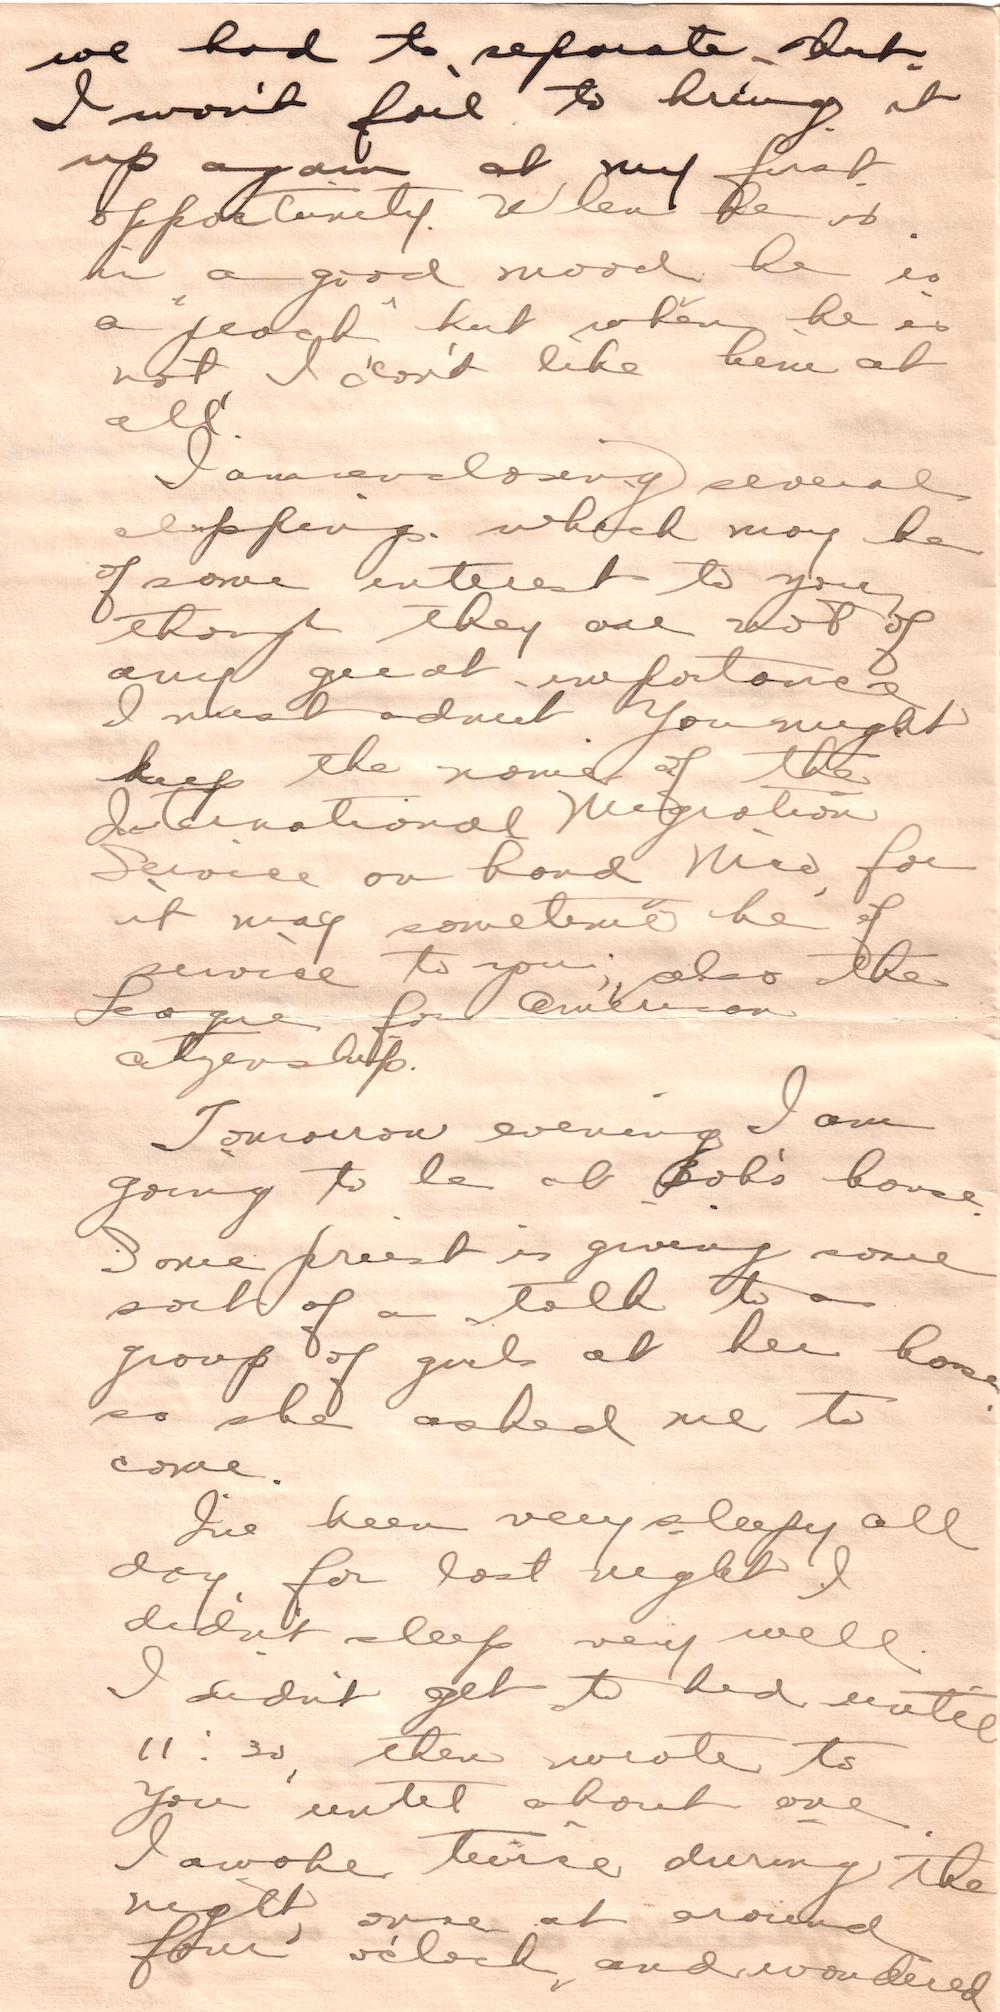 we had to separate, but
I won't fail to bring it
up again at my first
opportunity. When he is
in a good mood he is
a "peach" but when he is
not, I don't like him at
all.
I am enclosing several
clippings which may be
of some interest to you,
though they are not of
any great importance
I must admit. You might
keep the name of the
International Migration
Service on hand Mrs, for
it may sometime be of
service to you; also the
League for American
citizenship.
Tomorrow evening I am
going to be at Bob's house.
Some priest is giving some
sort of a talk to a
group of girls at her house,
so she asked me to
come.
I've been very sleepy all
day, for last night I
didn't sleep very well.
I didn't get to bed until
11:30, then wrote to
you until about one.
I awoke twice during the
night, once at around
four o'clock, and wondered